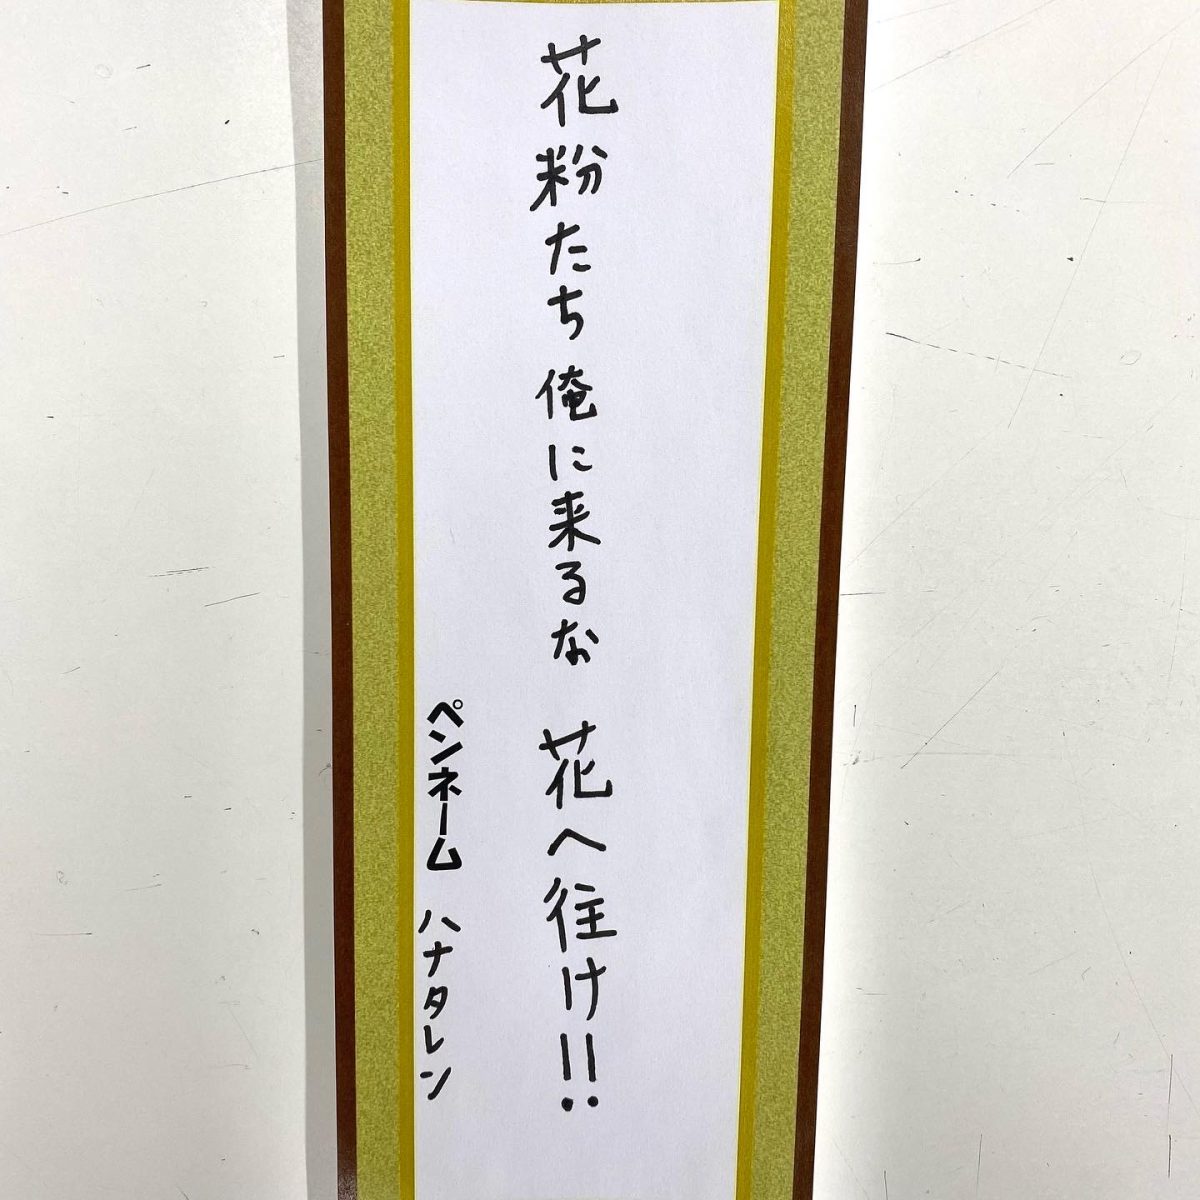 花粉たち 俺に来るな 花へ往け!!
ペンネーム ハナタレン